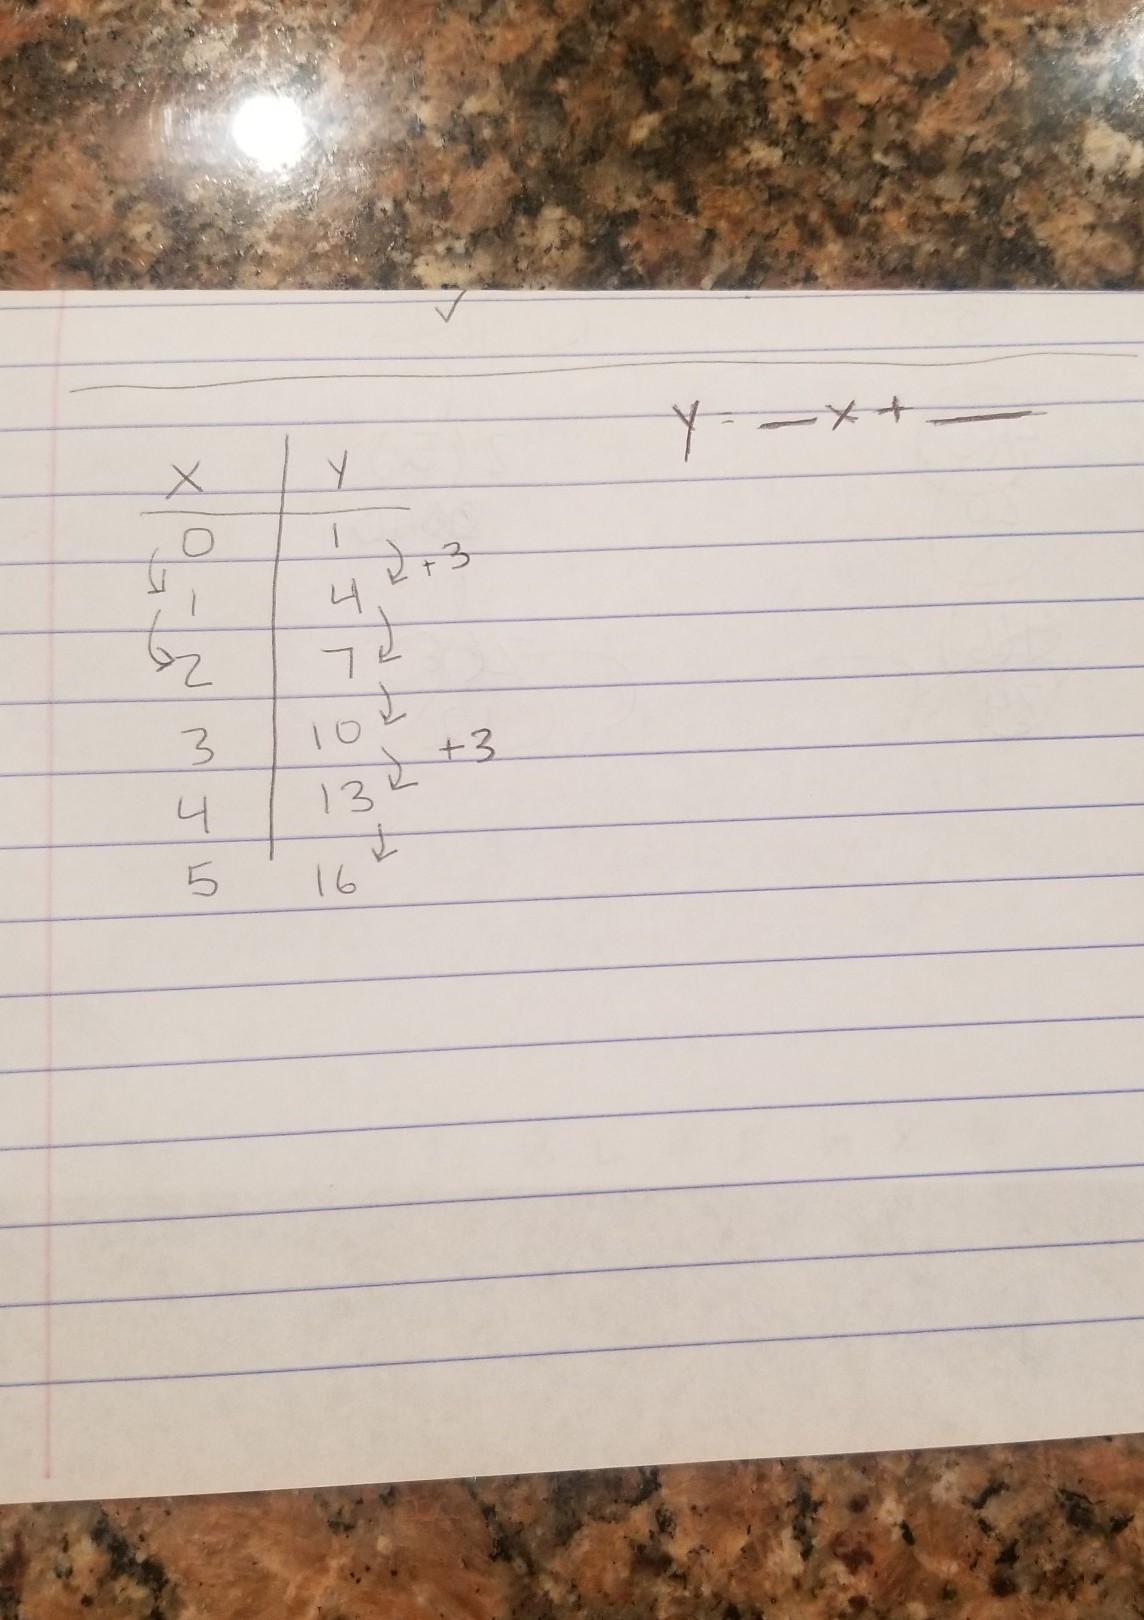 y = _x + _
x y
0 1
+3
1 4
2 7
3 10
+3
4 13
5 16